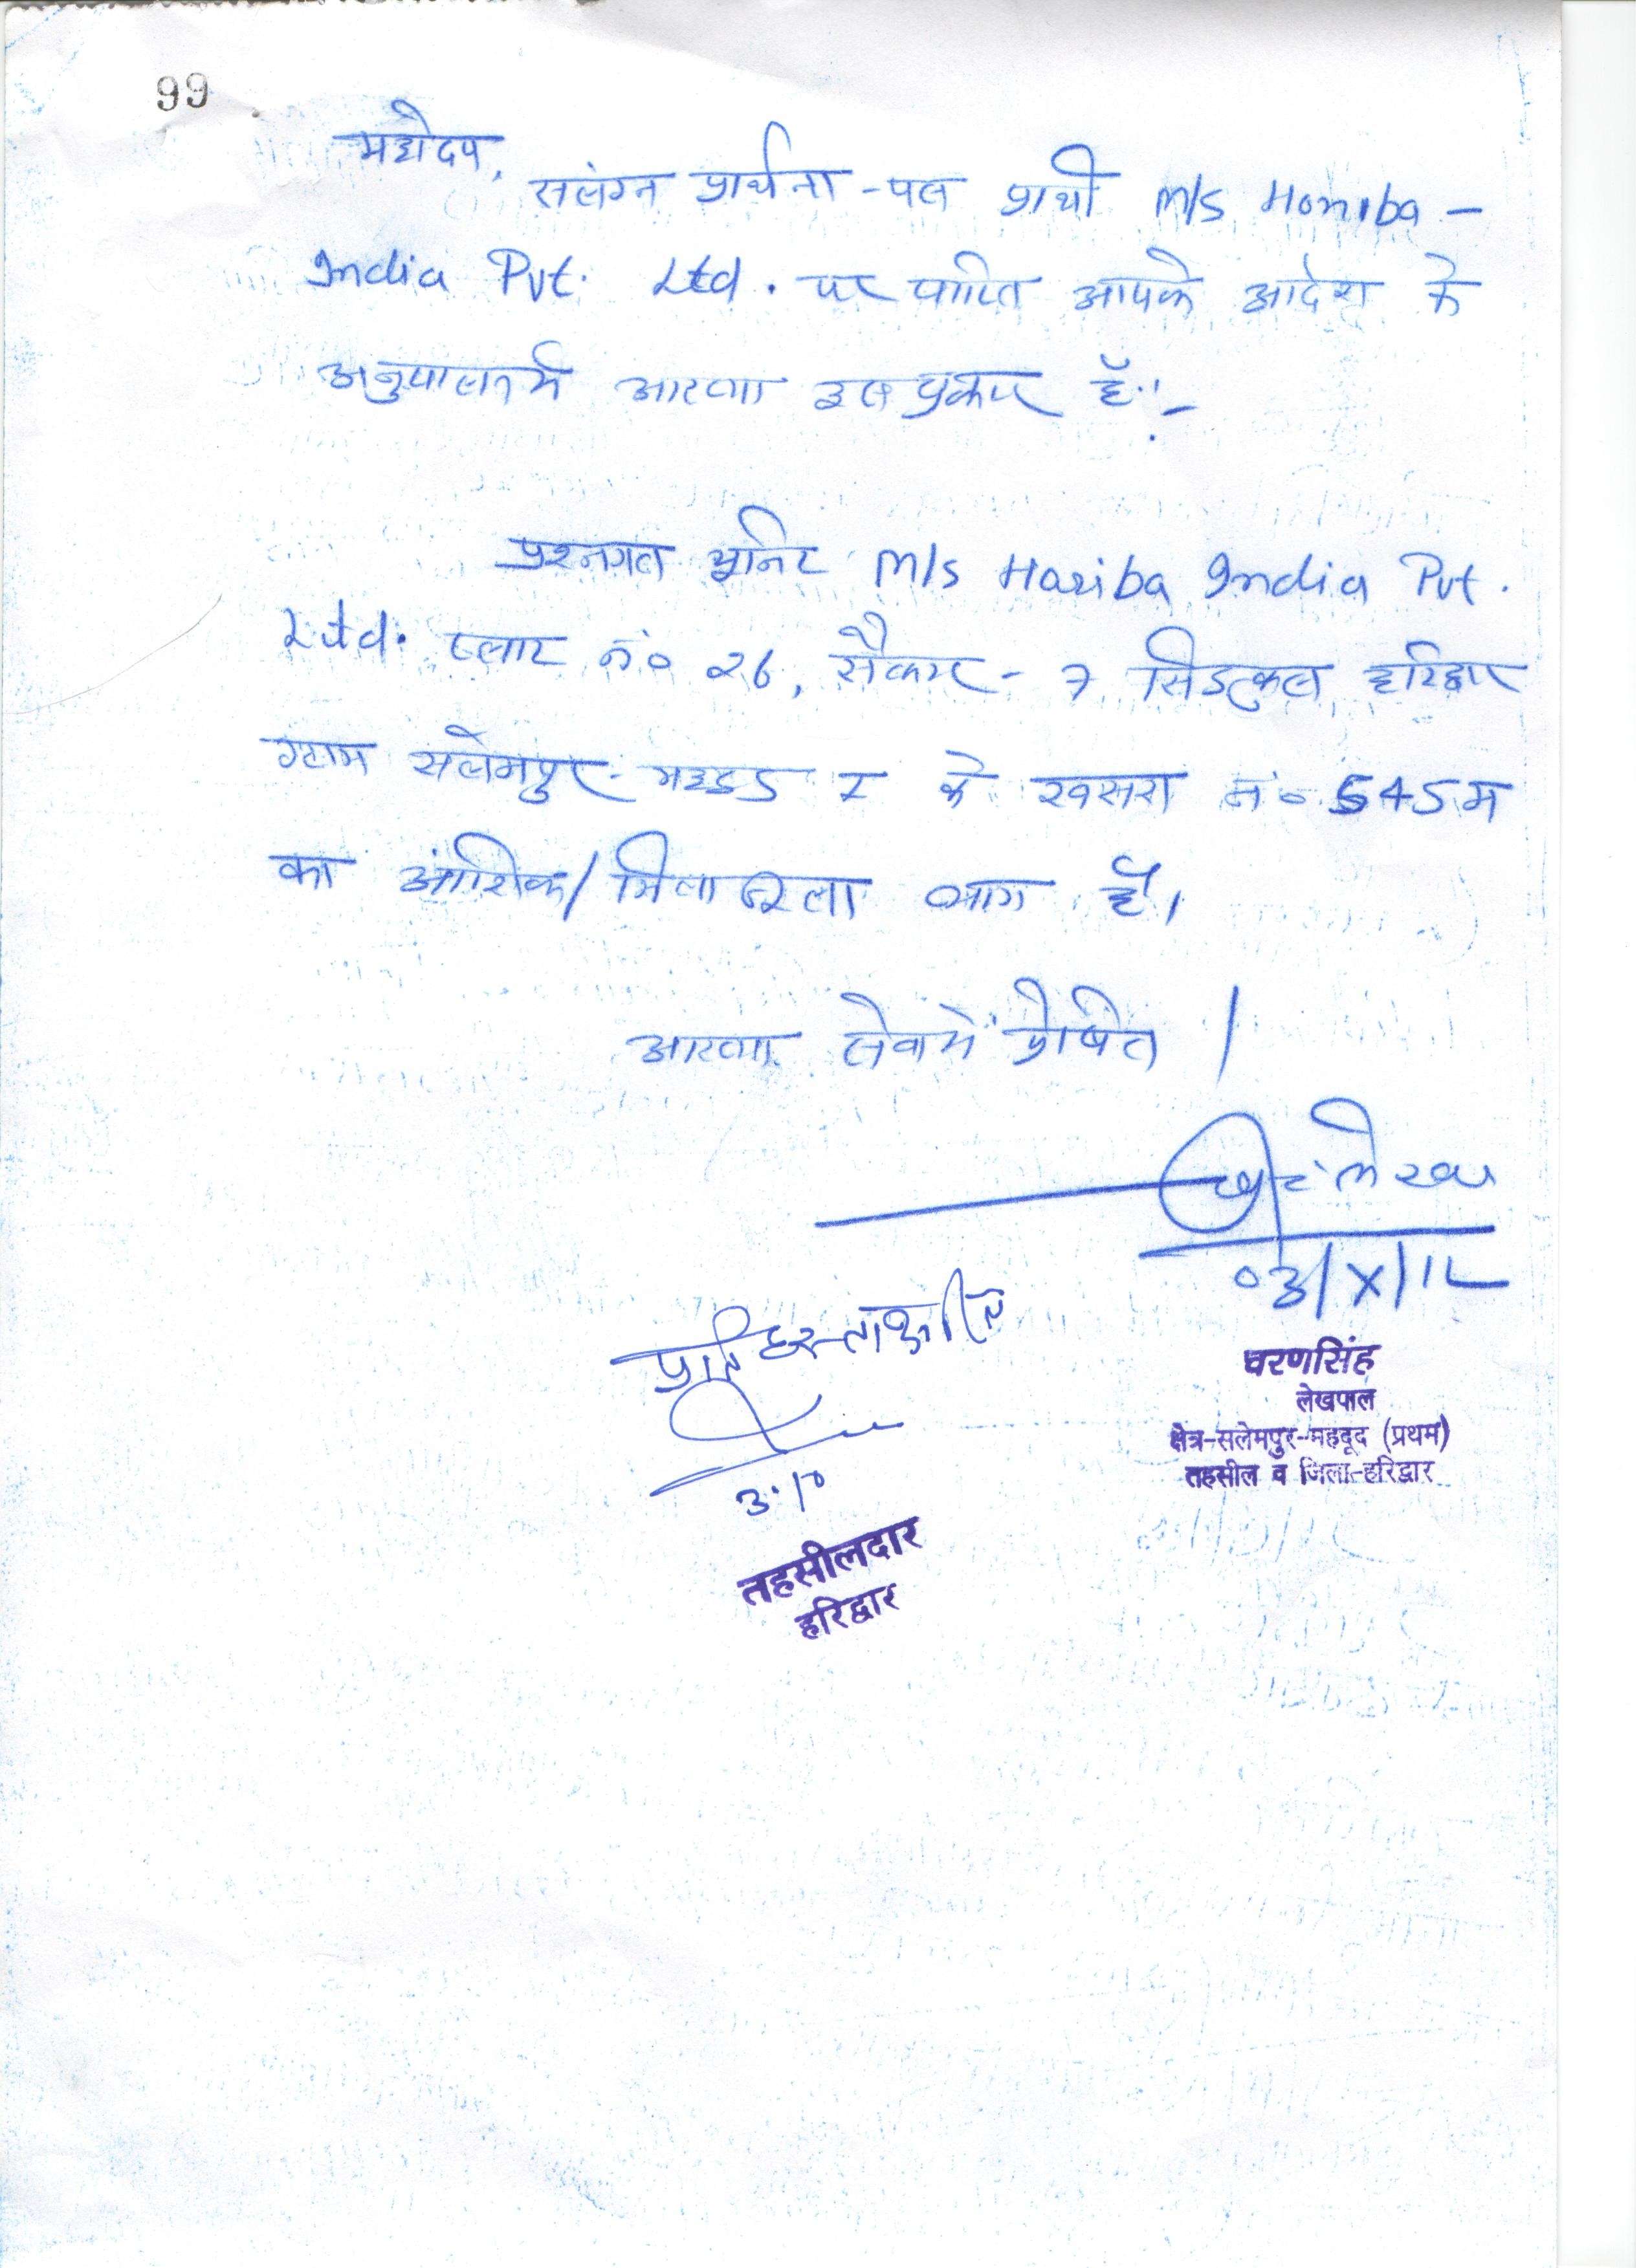 99
महोदय,
संलग्न प्रार्थना-पत्र प्रार्थी M/s Horiba -
India Pvt. Ltd. पर पारित आपके आदेश के
अनुपालन में आख्या इस प्रकार है:-
प्रश्नगत यूनिट M/s Horiba India Pvt.
Ltd. प्लाट नं० 26, सैक्टर - 7 सिडकुल हरिद्वार
ग्राम सलेमपुर - महदूद I के खसरा नं० 545 म
का आंशिक/मिला जुला भाग है।
आख्या सेवा में प्रेषित।
03/X/12
प्रतिहस्ताक्षरित
3.10
चरणसिंह
लेखपाल
क्षेत्र-सलेमपुर-महदूद (प्रथम)
तहसील व जिला-हरिद्वार
तहसीलदार
हरिद्वार